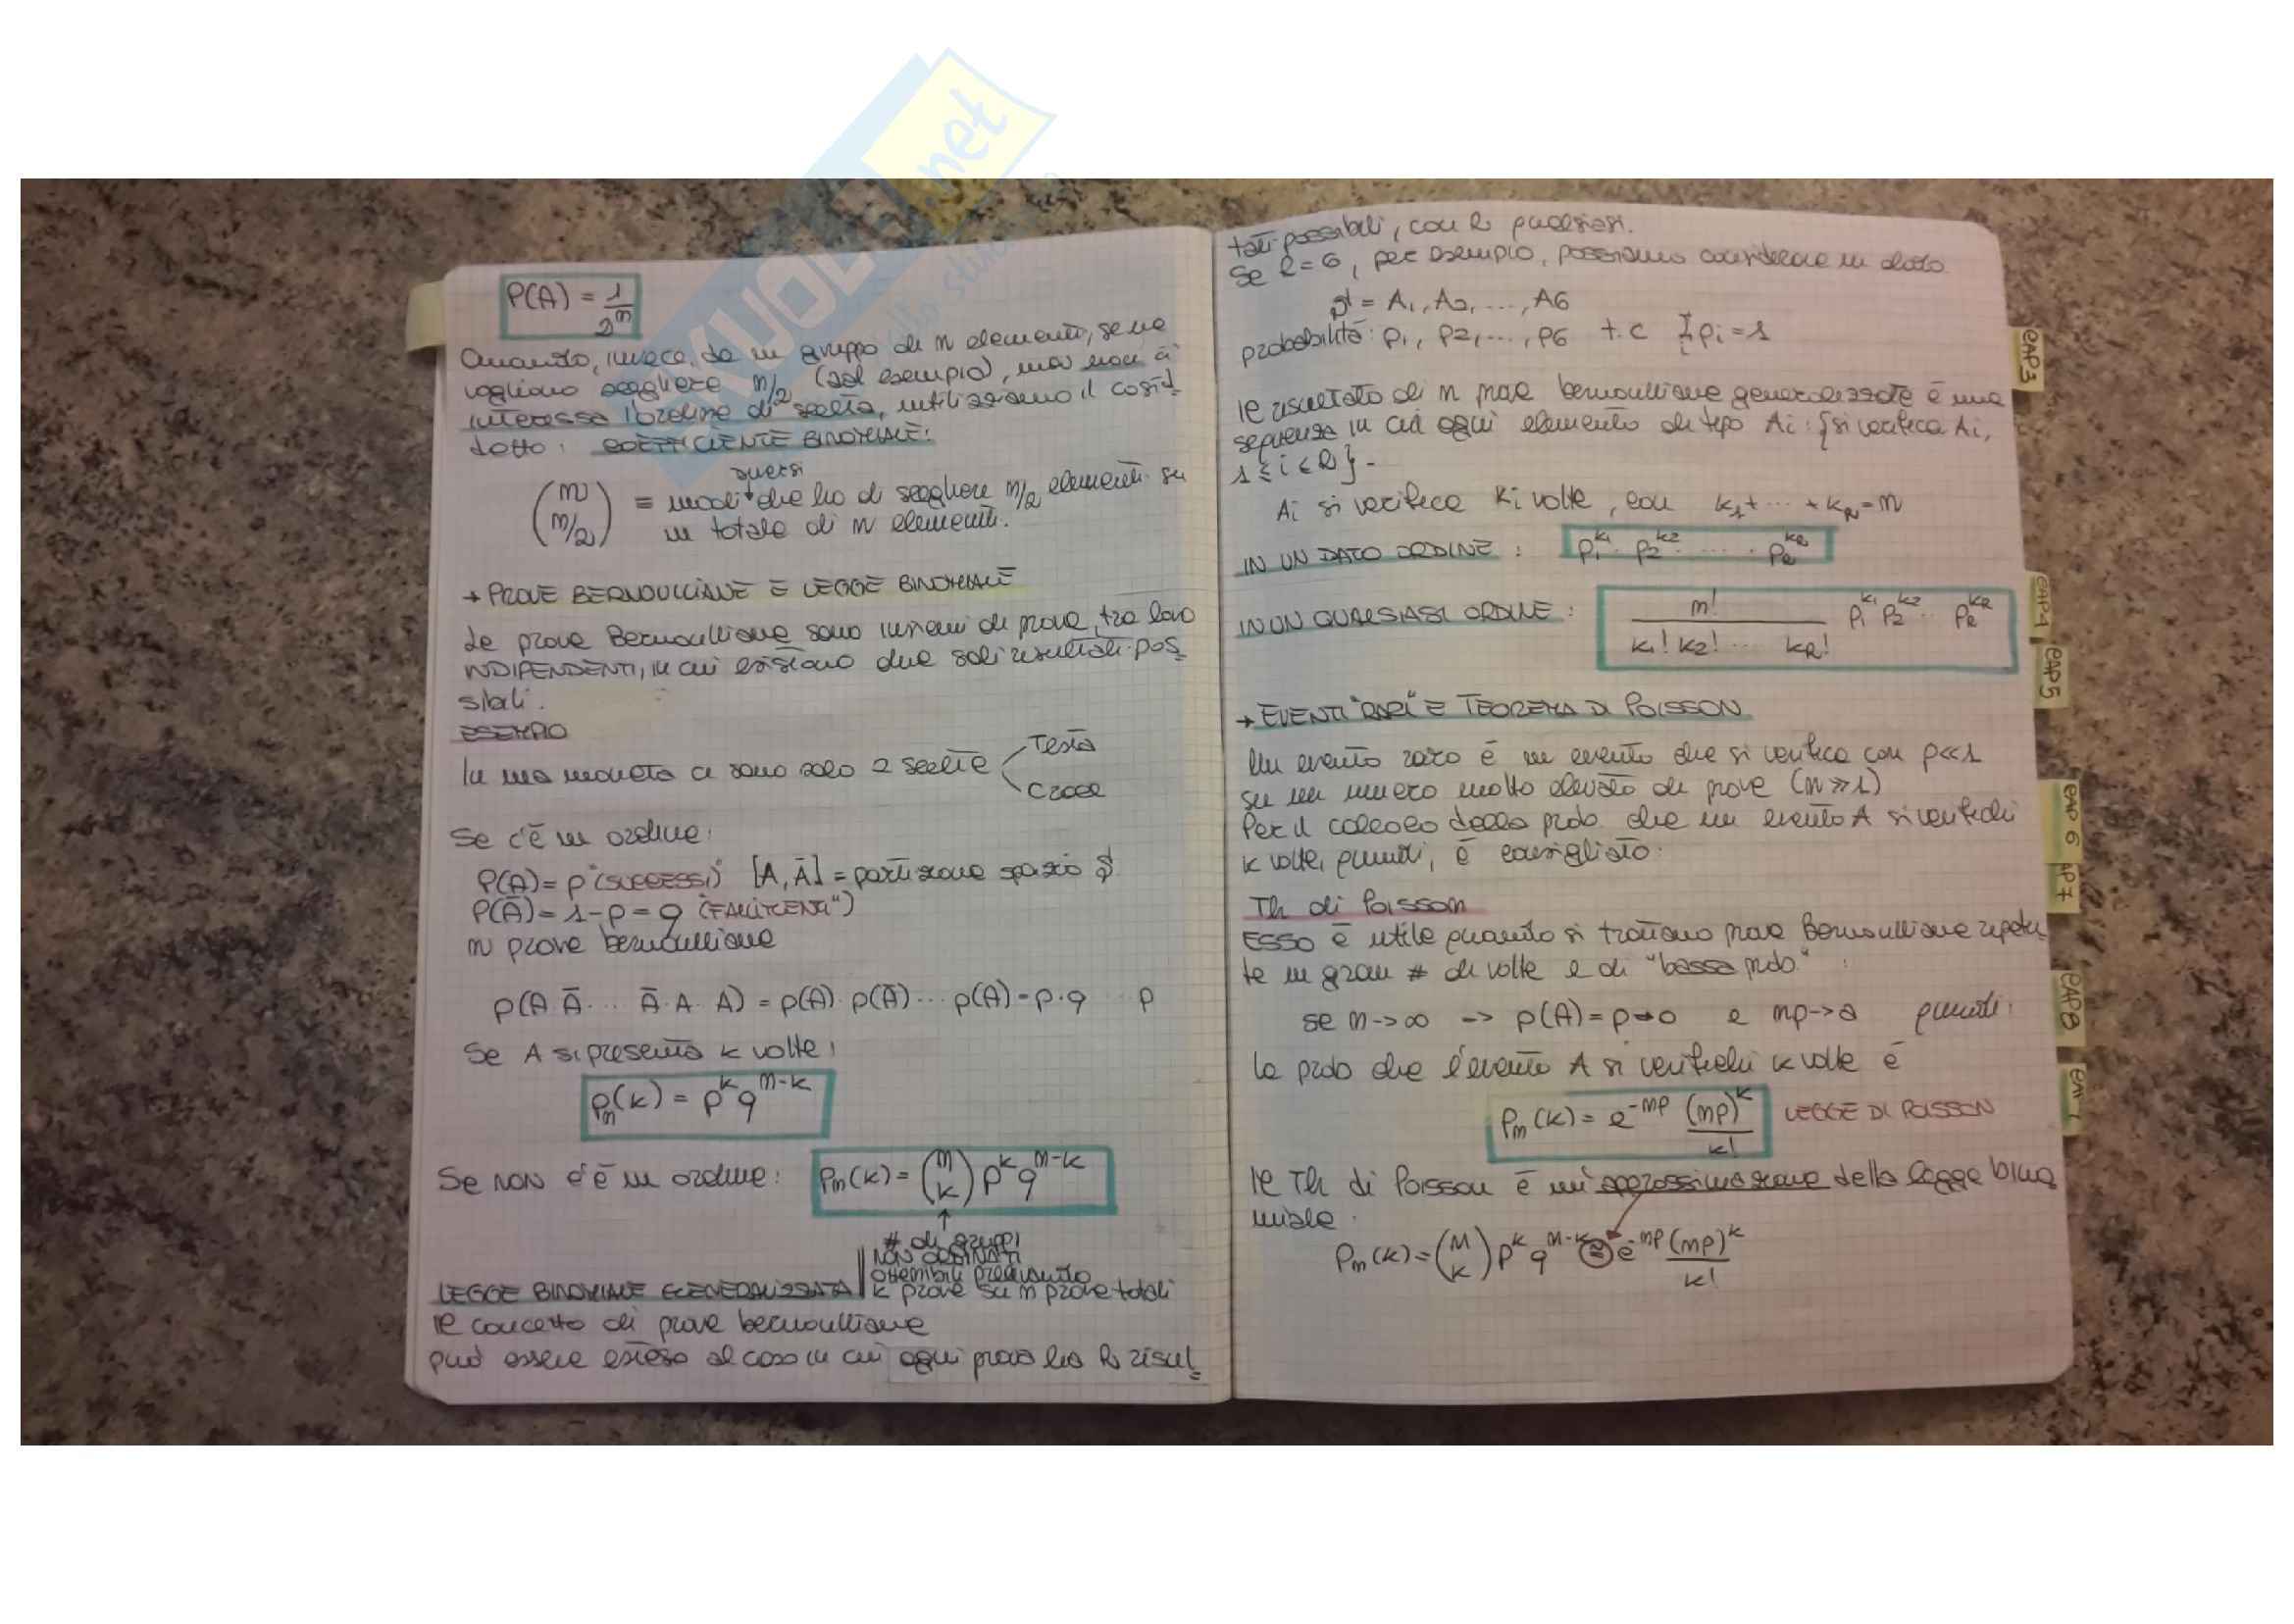 P(A) = 1/2^n
Quando, invece, da un gruppo di n elementi, se ne
vogliono scegliere n/2 (ad esempio), ma non ci
interessa l'ordine di scelta, utilizziamo il cosid
detto: COEFFICIENTE BINOMIALE:
(n n/2) = modi diversi che ho di scegliere n/2 elementi su
un totale di n elementi.
→ PROVE BERNOULLIANE E LEGGE BINOMIALE
Le prove Bernoulliane sono insiemi di prove, tra loro
INDIPENDENTI, in cui esistono due soli risultati pos
sibili.
ESEMPIO
In una moneta ci sono solo 2 scelte
Testa
Croce
Se c'è un ordine:
P(A) = p "(SUCCESSI)" [A, Ā] = partizione spazio S
P(Ā) = 1-p = q (FALLIMENTI")
n prove bernoulliane
p(A·Ā··· Ā·A·A) = p(A)·p(Ā)···p(A) = p·q···p
Se A si presenta k volte:
Pn(k) = p^k q^n-k
Se NON c'è un ordine: Pn(k) = (n k) p^k q^n-k
↑
# di gruppi
NON ORDINATI
ottenibili prelevando
k prove su n prove totali
LEGGE BINOMIALE GENERALIZZATA
Il concetto di prove bernoulliane
può essere esteso al caso in cui ogni prova ha R risul
tati possibili, con R qualsiasi.
Se R=6, per esempio, possiamo considerare un dado
S = A1, A2, ..., A6
probabilità: p1, p2, ..., p6 t.c Σi pi = 1
Il risultato di n prove bernoulliane generalizzate è una
sequenza in cui ogni elemento di tipo Ai: {si verifica Ai,
1 ≤ i ≤ R}-
Ai si verifica Ki volte, con k1+ ··· +kR = n
IN UN DATO ORDINE: p1^k1 · p2^k2 · ···· · pR^kR
IN UN QUALSIASI ORDINE: n!/(k1! k2! ··· kR!) p1^k1 p2^k2 ·· pR^kR
→ EVENTI "RARI" E TEOREMA DI POISSON
Un evento raro è un evento che si verifica con p<<1
su un numero molto elevato di prove (n>>1)
Per il calcolo della prob. che un evento A si verifichi
k volte, quindi, è consigliato:
Th di Poisson
ESSO è utile quando si trattano prove Bernoulliane ripetu
te un gran # di volte e di "bassa prob.":
se n→∞ → p(A)=p→0 e np→a quindi:
la prob che l'evento A si verifichi k volte è
Pn(k) = e^-np (np)^k/k! LEGGE DI POISSON
Il Th di Poisson è un'approssimazione della legge bino
miale.
Pn(k) = (n k) p^k q^n-k ≅ e^-np (np)^k/k!
CAP3
CAP4
CAP5
CAP 6
AP7
CAP8
SKUOLA.net